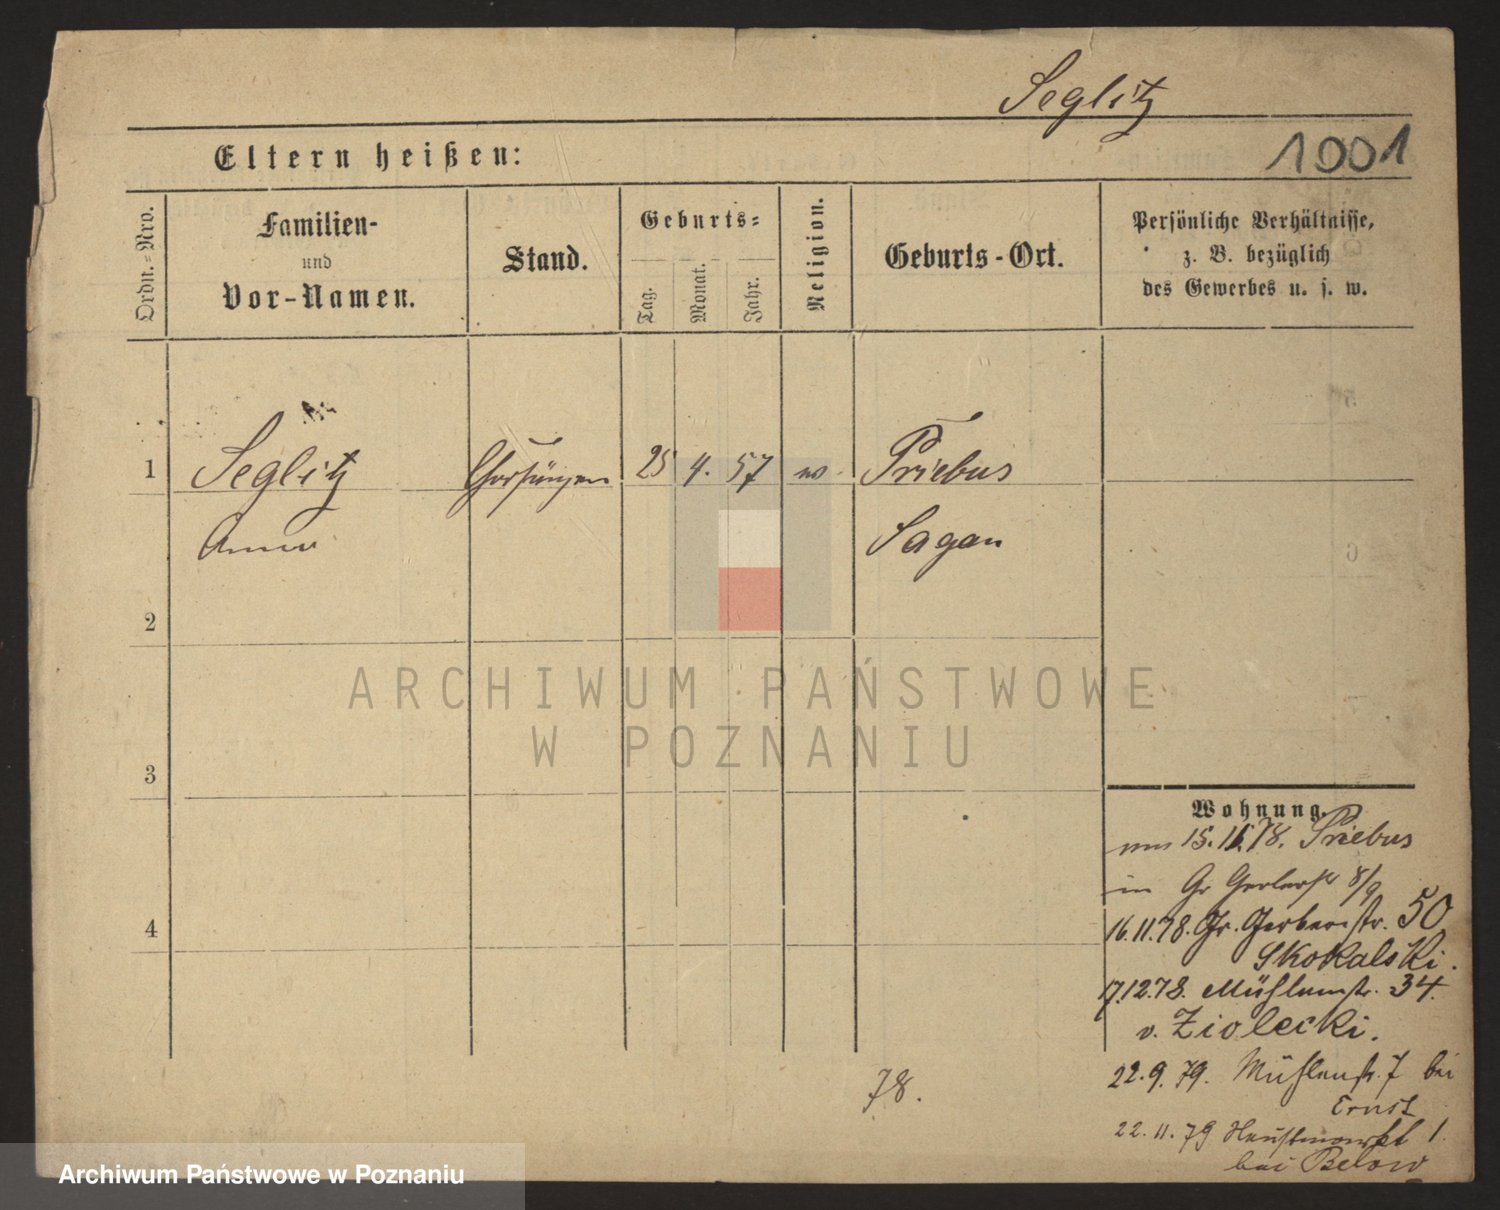 Seglitz
1001
Eltern heißen:
Ordn.=Nro.
Familien-
und
Vor-Namen.
Stand.
Geburts=
Tag.
Monat.
Jahr.
Religion.
Geburts-Ort.
Persönliche Verhältnisse,
z. B. bezüglich
des Gewerbes u. s. w.
1 Seglitz 25 4. 57 Priebus
Anna Sagan
2
3
4
ARCHIWUM PAŃSTWOWE
W POZNANIU
Wohnung.
15. 11. 78. Priebus
in Gr Gerberstr 8/9
16.11.78. Gr. Gerberstr. 50
Skokalski.
17.12.78. Mühlenstr. 34.
v. Ziolecki.
22.9.79. Mühlenstr. 7 bei
Ernst
22.11.79 1.
bei Below
78.
Archiwum Państwowe w Poznaniu